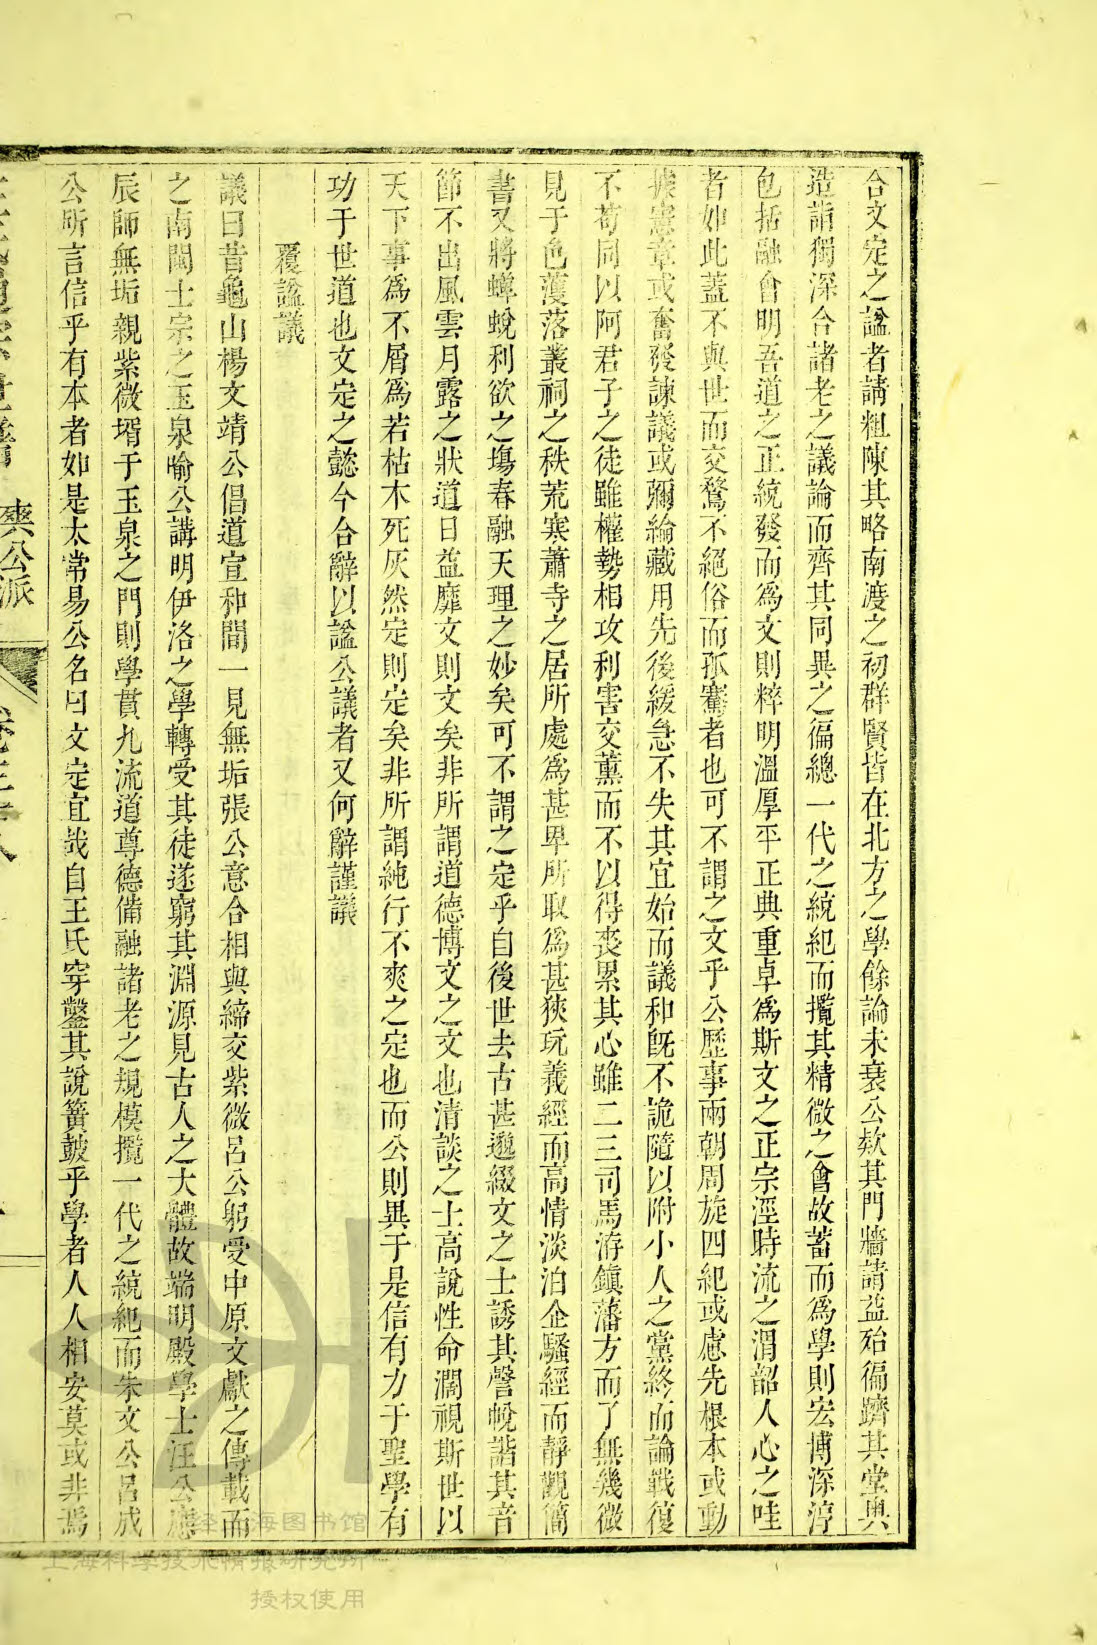 合文定之諡者請粗陳其略南渡之初群賢皆在北方之學餘論未衰公欵其門牆請益殆徧躋其堂奧
造詣獨深合諸老之議論而齊其同異之徧總一代之統紀而攬其精微之會故蓄而爲學則宏博深淳
包括融會明吾道之正統發而爲文則粹明溫厚平正典重卓爲斯文之正宗涇時流之渭韶人心之哇
者如此蓋不與世而交騖不絕俗而孤騫者也可不謂之文乎公歷事兩朝周旋四紀或慮先根本或動
據憲章或奮發諫議或彌綸藏用先後緩急不失其宜始而議和旣不詭隨以附小人之黨終而論戰復
不苟同以阿君子之徒雖權勢相攻利害交薰而不以得喪累其心雖二三司馬游鎮藩方而了無幾微
見于色蒦落叢祠之秩荒寒蕭寺之居所處爲甚卑所取爲甚狹玩義經而高情淡泊企騷經而靜觀簡
書又將蟬蛻利欲之塲春融天理之妙矣可不謂之定乎自後世去古甚邈綴文之士誘其謦帨諧其音
節不出風雲月露之狀道日益靡文則文矣非所謂道德博文之文也清談之士高說性命濶視斯世以
天下事爲不屑爲若枯木死灰然定則定矣非所謂純行不爽之定也而公則異于是信有力于聖學有
功于世道也文定之懿今合辭以諡公議者又何辭謹議
覆諡議
議曰昔龜山楊文靖公倡道宣和間一見無垢張公意合相與締交紫微呂公躬受中原文獻之傳載而
之南閩士宗之玉泉喻公講明伊洛之學轉受其徒遂窮其淵源見古人之大體故端明殿學士汪公應
辰師無垢親紫微壻于玉泉之門則學貫九流道尊德備融諸老之規模攬一代之統紀而朱文公呂成
公所言信乎有本者如是太常易公名曰文定宜哉自王氏穿鑿其說簧鼓乎學者人人相安莫或非焉
爽公派
卷三十八
上海图书馆
上海科学技术情报研究所
授权使用